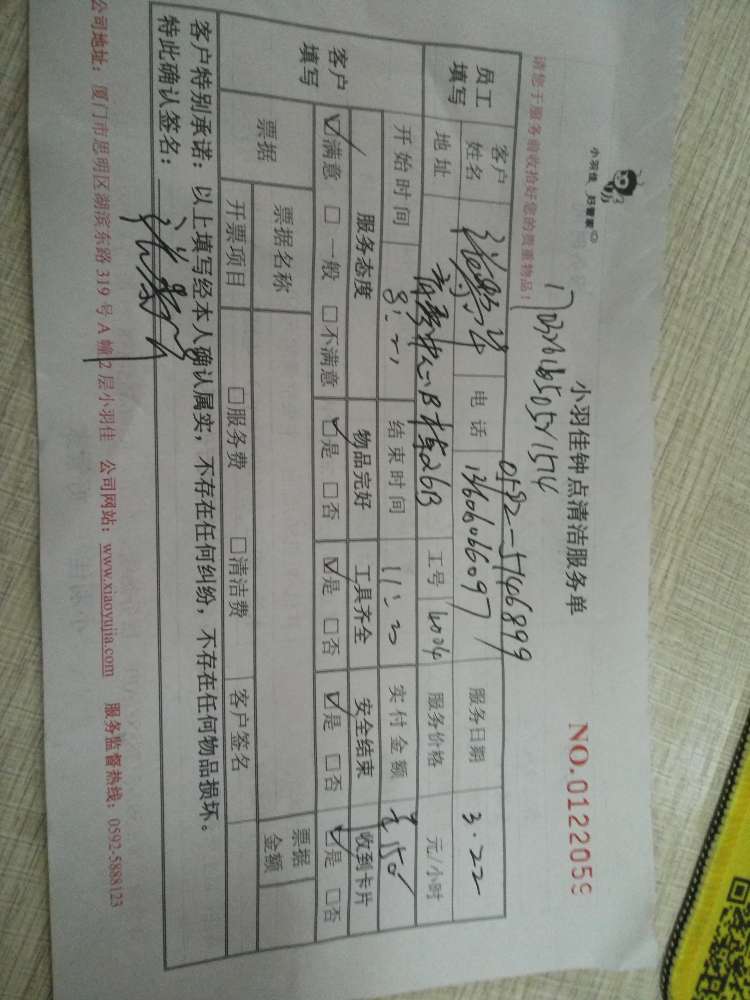 小羽佳 好管家
小羽佳钟点清洁服务单
NO.0122059
请您于服务前收拾好您的贵重物品！
0592-5746899
员工填写 客户姓名 电话 13606066097 服务日期 3.22
地址 B 26B 工号 4004 服务价格 元/小时
开始时间 8: 结束时间 11: 实付金额 150
客户填写 服务态度 物品完好 工具齐全 安全结束 收到卡片
☑满意 □一般 □不满意 ☑是 □否 ☑是 □否 ☑是 □否 ☑是 □否
票据 票据名称 票据金额
开票项目 □服务费 □清洁费 客户签名
客户特别承诺：以上填写经本人确认属实，不存在任何纠纷，不存在任何物品损坏。
特此确认签名：
公司地址：厦门市思明区湖滨东路 319 号 A 幢 2 层小羽佳 公司网站：www.xiaoyujia.com 服务监督热线：0592-5888123